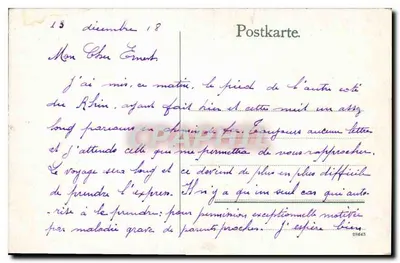 13 décembre 18
Postkarte.
Mon Cher Ernest
J'ai mis, ce matin, le pied de l'autre coté
du Rhin, ayant fait hier et cette nuit un assez
long parcours en chemin de fer. Toujours aucune lettre
et j'attends celle qui me permettra de vous rapprocher.
Le voyage sera long et ce devient de plus en plus difficile
de prendre l'express. Il n'y a qu'un seul cas qui auto-
rise à le prendre: pour permission exceptionnelle motivée
par maladie grave de parents proches. J'espère bien